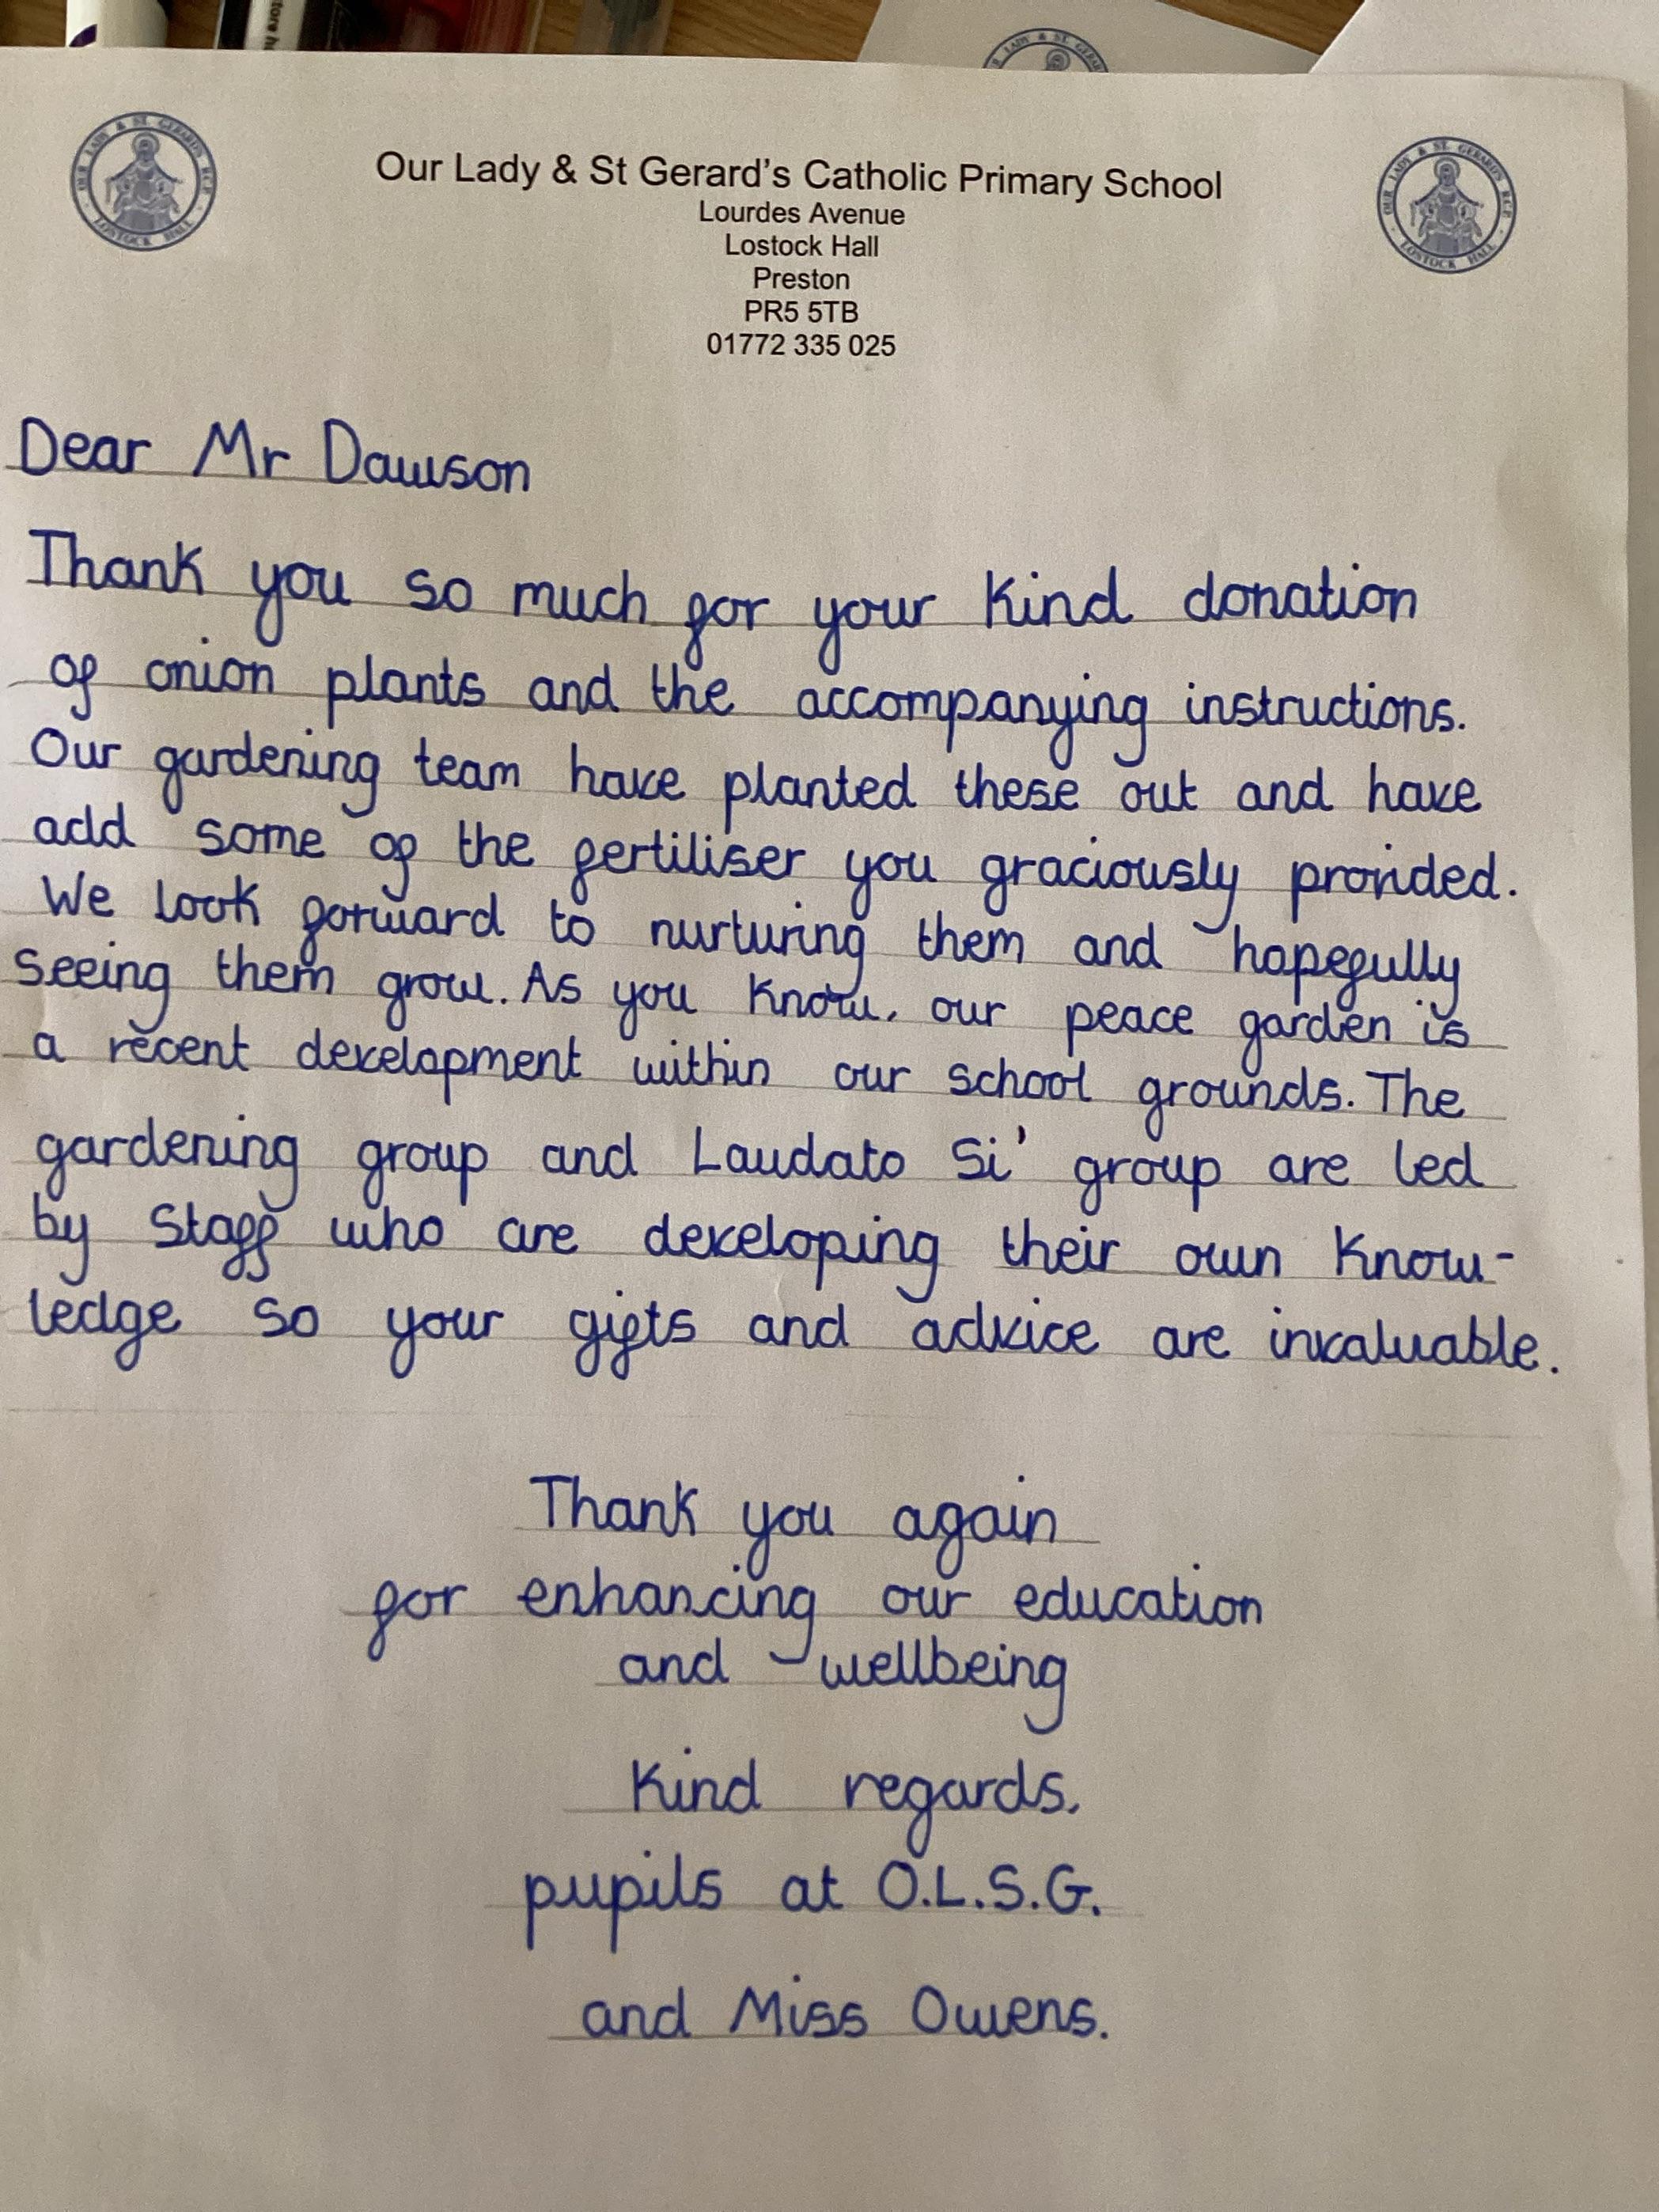 OUR LADY & ST. GERARD'S R.C.P. LOSTOCK HALL
OUR LADY & ST. GERARD'S R.C.P. LOSTOCK HALL
Our Lady & St Gerard's Catholic Primary School
Lourdes Avenue
Lostock Hall
Preston
PR5 5TB
01772 335 025
Dear Mr Dawson
Thank you so much for your kind donation
of onion plants and the accompanying instructions.
Our gardening team have planted these out and have
add some of the fertiliser you graciously provided.
We look forward to nurturing them and hopefully
seeing them grow. As you know, our peace garden is
a recent development within our school grounds. The
gardening group and Laudato Si' group are led
by Staff who are developing their own know-
ledge so your gifts and advice are invaluable.
Thank you again
for enhancing our education
and wellbeing
Kind regards,
pupils at O.L.S.G.
and Miss Owens.